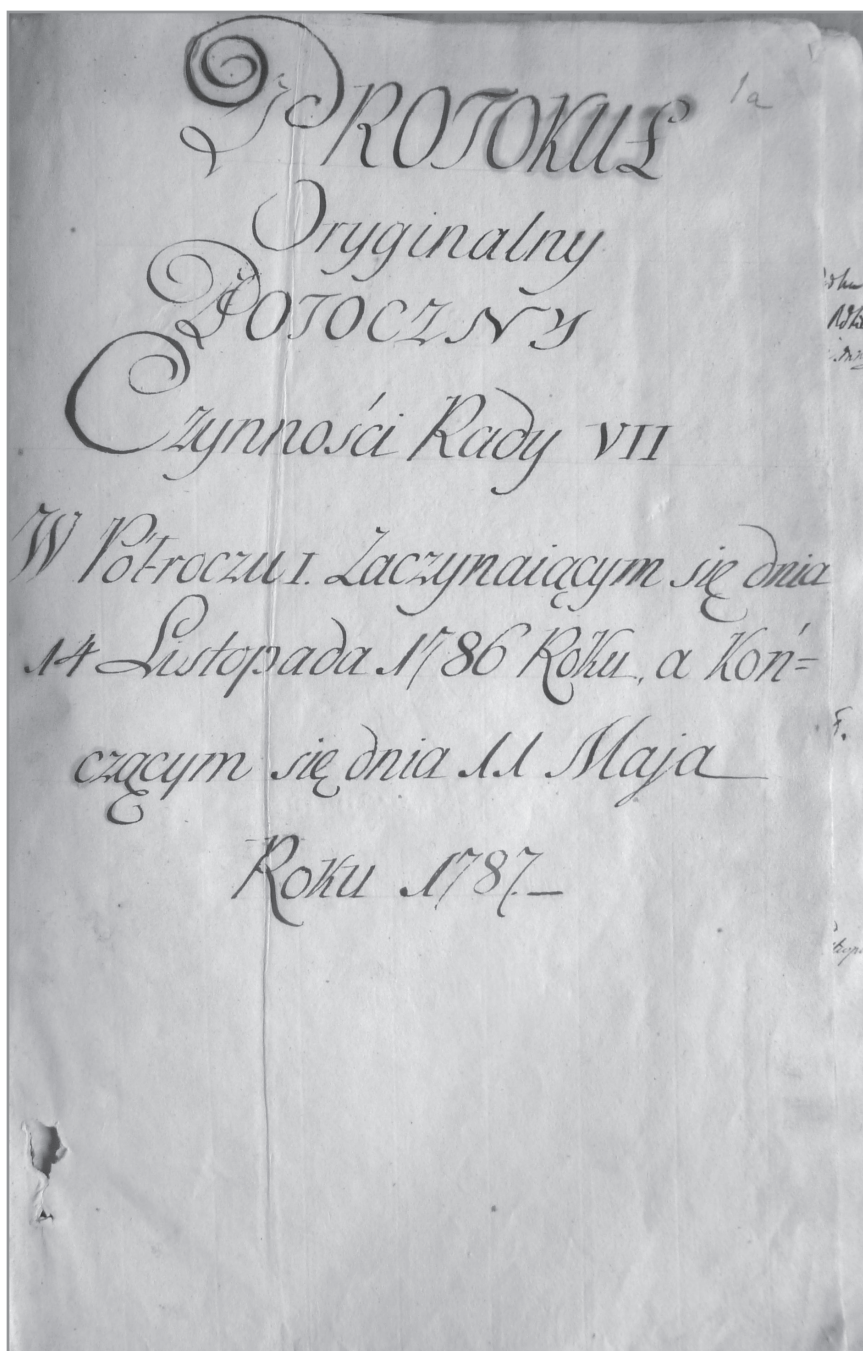 1a
PROTOKUŁ
Oryginalny
POTOCZNY
Czynności Rady VII
W Półroczu I. Zaczynaiącym się dnia
14 Listopada 1786 Roku, a Koń=
czącym się dnia 11 Maja
Roku 1787.—